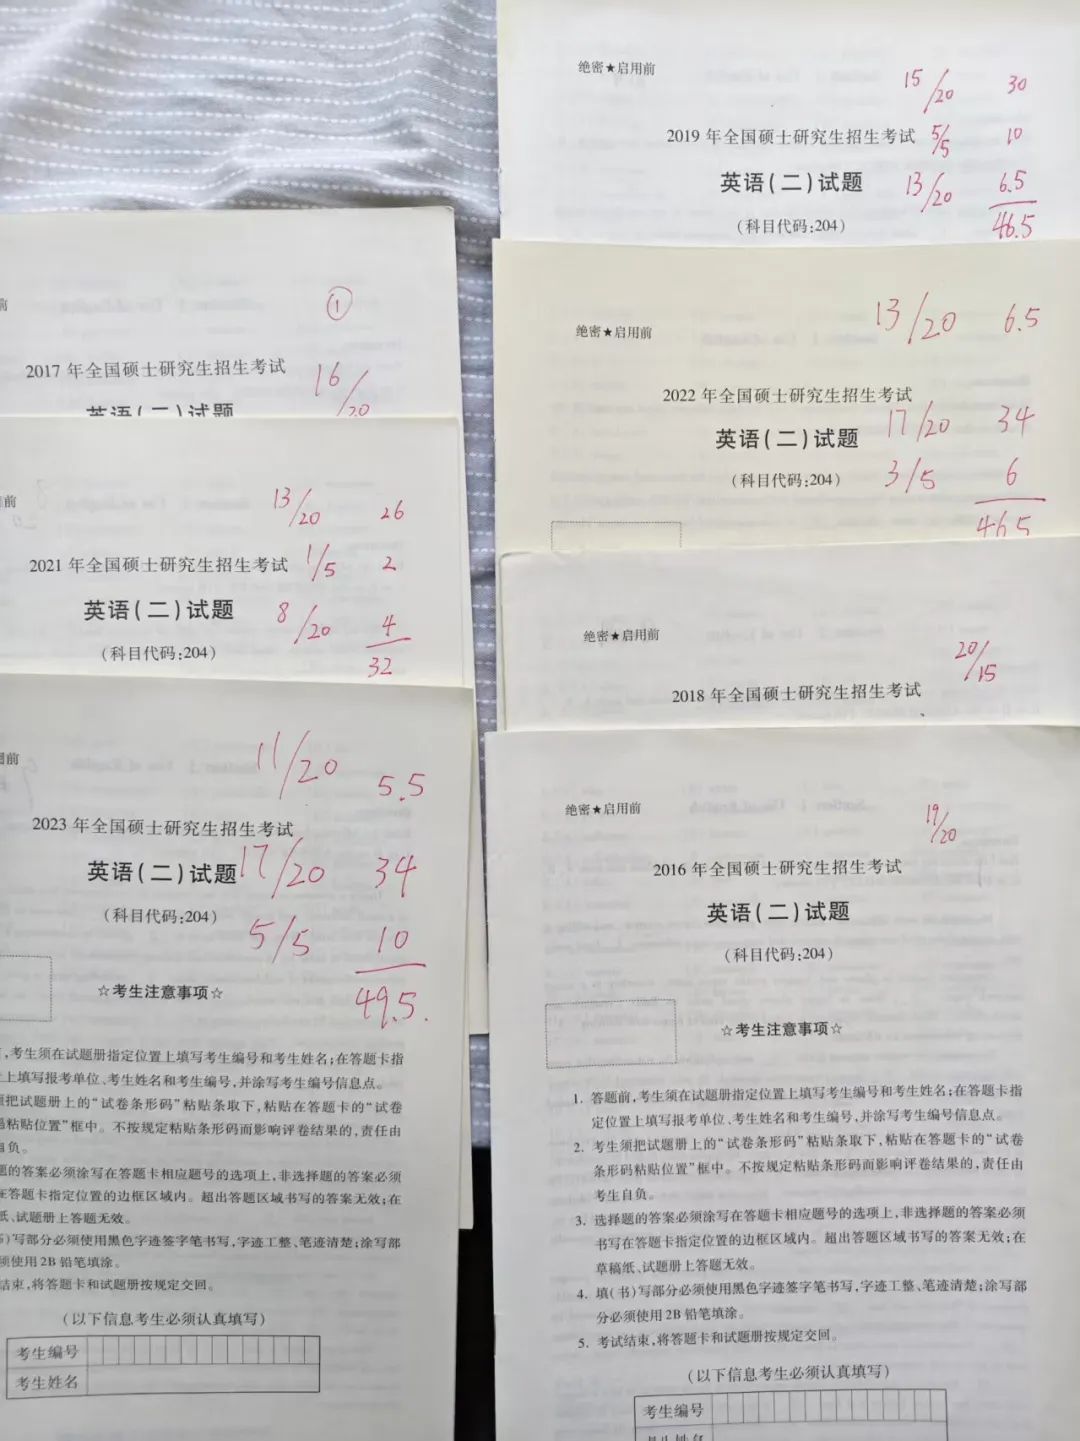 绝密★启用前
15/20 30
2019年全国硕士研究生招生考试 5/5 10
英语(二)试题 13/20 6.5
(科目代码:204) 46.5
前
①
2017年全国硕士研究生招生考试 16/20
英语(二)试题
绝密★启用前 13/20 6.5
2022年全国硕士研究生招生考试
英语(二)试题 17/20 34
(科目代码:204) 3/5 6
46.5
前 13/20 26
2021年全国硕士研究生招生考试 1/5 2
英语(二)试题 8/20 4
(科目代码:204) 32
绝密★启用前 20/15
2018年全国硕士研究生招生考试
用前 11/20 5.5
2023年全国硕士研究生招生考试
英语(二)试题 17/20 34
(科目代码:204) 5/5 10
49.5.
☆考生注意事项☆
,考生须在试题册指定位置上填写考生编号和考生姓名;在答题卡指
上填写报考单位、考生姓名和考生编号,并涂写考生编号信息点。
须把试题册上的“试卷条形码”粘贴条取下,粘贴在答题卡的“试卷
码粘贴位置”框中。不按规定粘贴条形码而影响评卷结果的,责任由
自负。
题的答案必须涂写在答题卡相应题号的选项上,非选择题的答案必须
在答题卡指定位置的边框区域内。超出答题区域书写的答案无效;在
纸、试题册上答题无效。
书)写部分必须使用黑色字迹签字笔书写,字迹工整、笔迹清楚;涂写部
须使用2B铅笔填涂。
结束,将答题卡和试题册按规定交回。
(以下信息考生必须认真填写)
考生编号
考生姓名
绝密★启用前 19/20
2016年全国硕士研究生招生考试
英语(二)试题
(科目代码:204)
☆考生注意事项☆
1. 答题前,考生须在试题册指定位置上填写考生编号和考生姓名;在答题卡指
定位置上填写报考单位、考生姓名和考生编号,并涂写考生编号信息点。
2. 考生须把试题册上的“试卷条形码”粘贴条取下,粘贴在答题卡的“试卷
条形码粘贴位置”框中。不按规定粘贴条形码而影响评卷结果的,责任由
考生自负。
3. 选择题的答案必须涂写在答题卡相应题号的选项上,非选择题的答案必须
书写在答题卡指定位置的边框区域内。超出答题区域书写的答案无效;在
草稿纸、试题册上答题无效。
4. 填(书)写部分必须使用黑色字迹签字笔书写,字迹工整、笔迹清楚;涂写部
分必须使用2B铅笔填涂。
5. 考试结束,将答题卡和试题册按规定交回。
(以下信息考生必须认真填写)
考生编号
考生姓名